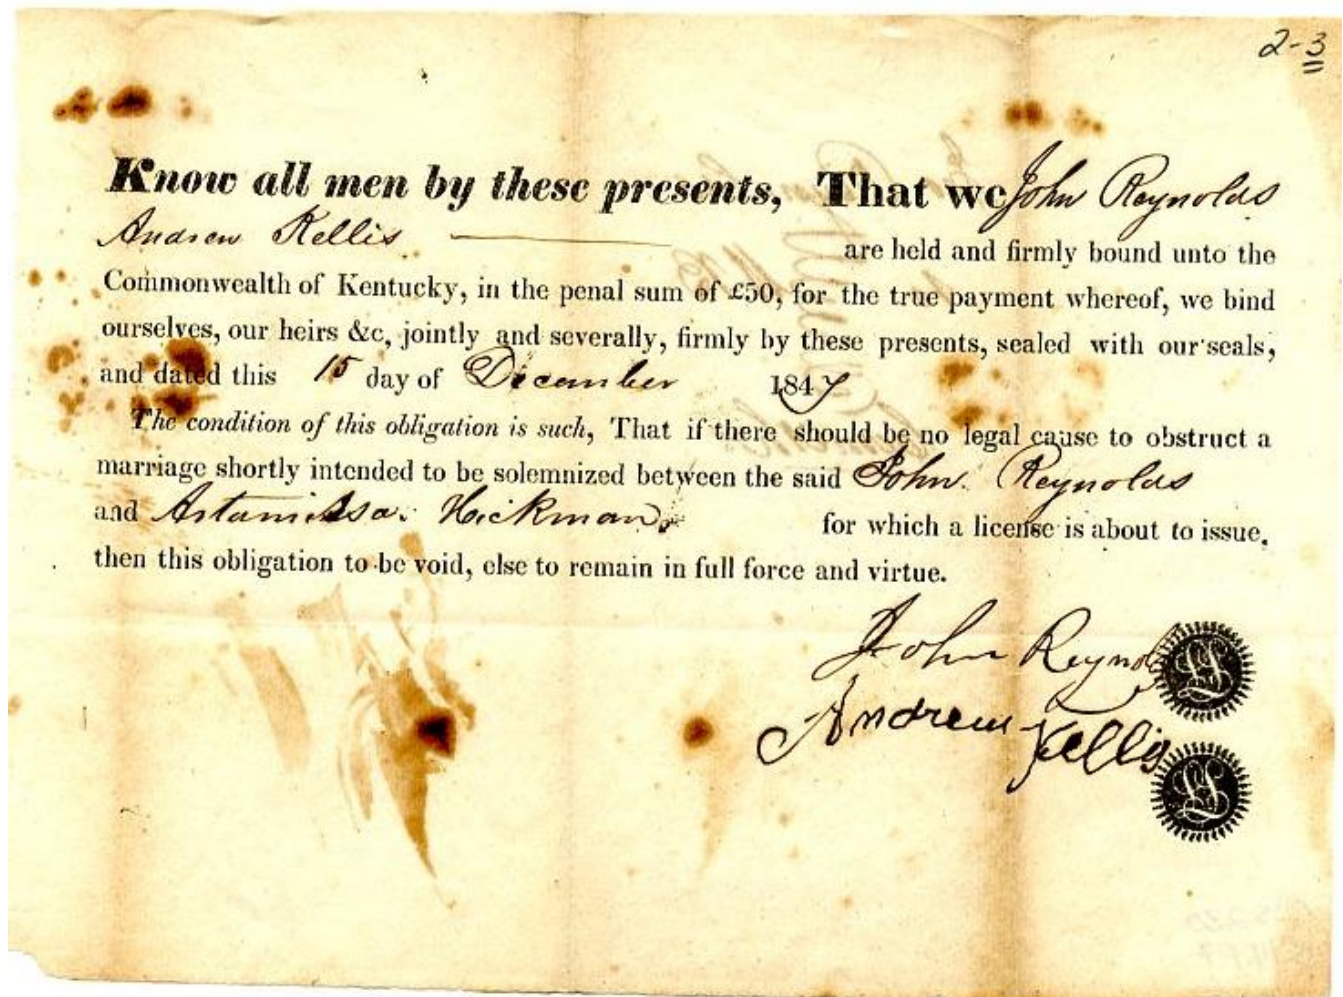 2-3
Know all men by these presents, That we John Reynolds
Andrew Kellis are held and firmly bound unto the
Commonwealth of Kentucky, in the penal sum of £50, for the true payment whereof, we bind
ourselves, our heirs &c, jointly and severally, firmly by these presents, sealed with our seals,
and dated this 15 day of December 1847
The condition of this obligation is such, That if there should be no legal cause to obstruct a
marriage shortly intended to be solemnized between the said John Reynolds
and Artamissa Hickman for which a license is about to issue,
then this obligation to be void, else to remain in full force and virtue.
John Reynolds
Andrew Kellis
LS
LS